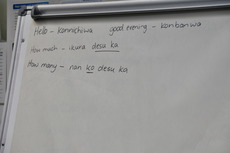 Hello - konnichiwa    good evening - konbanwa
How much - ikura desu ka
How many - nan ko desu ka